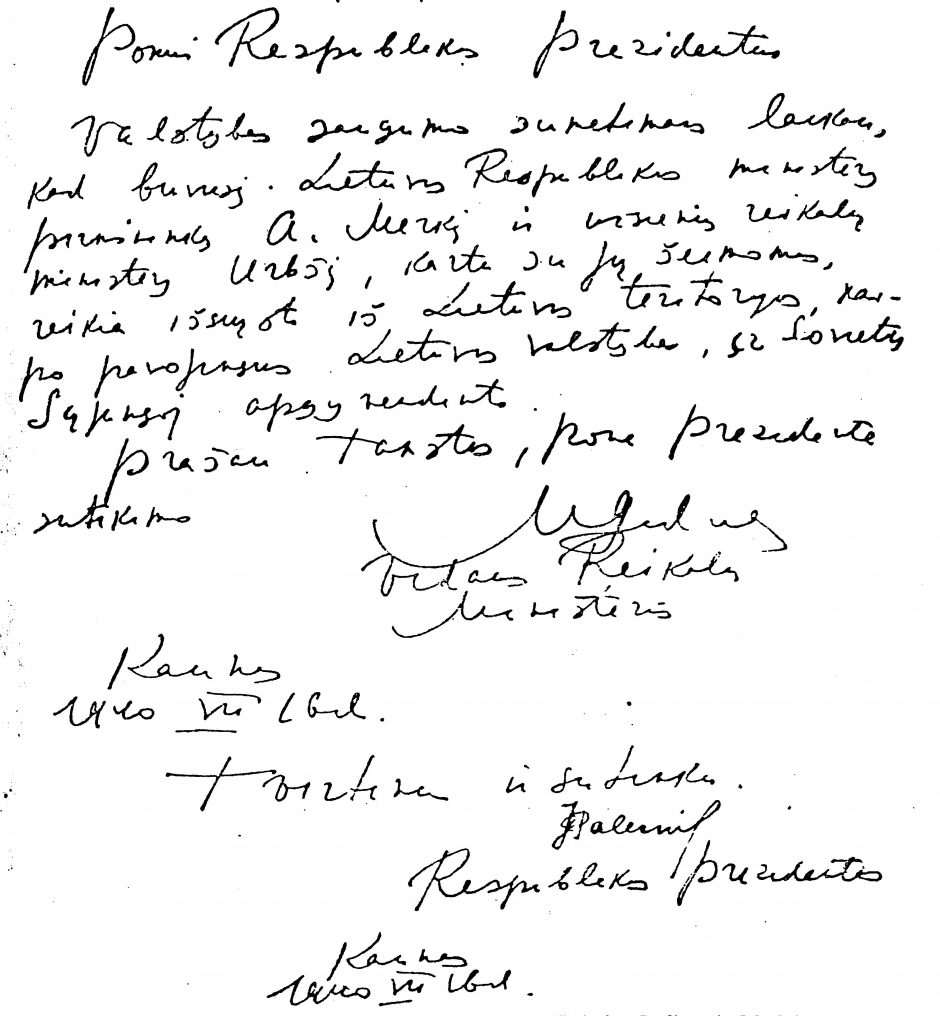 Ponui Respublikos Prezidentui
Valstybės saugumo sumetimais laikau,
kad buvusį Lietuvos Respublikos ministrų
pirmininką A. Merkį ir užsienių reikalų
ministrą Urbšį, kartu su jų šeimomis,
reikia išsiųsti iš Lietuvos teritorijos, kai-
po pavojingus Lietuvos valstybei, į Sovietų
Sąjungą apgyvendinti.
Prašau Tamstos, pone Prezidente
sutikimo
MGedvilas
Vidaus Reikalų
Ministeris
Kaunas
1940 VII 16 d.
Tvirtinu ir sutinku.
JPaleckis
Respublikos Prezidentas
Kaunas
1940 VII 16 d.